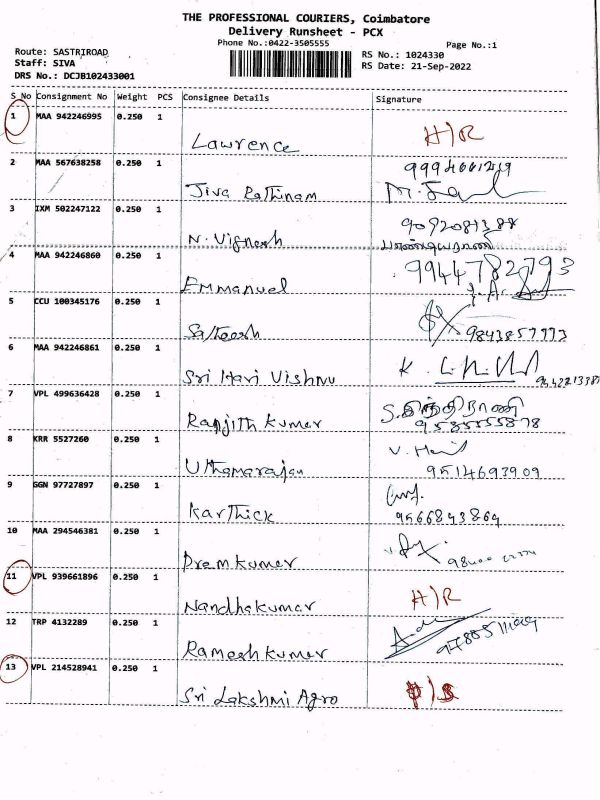 THE PROFESSIONAL COURIERS, Coimbatore
Delivery Runsheet - PCX
Phone No.:0422-3505555
Page No.:1
Route: SASTRIROAD
Staff: SIVA
DRS No.: DCJB102433001
RS No.: 1024330
RS Date: 21-Sep-2022
S No Consignment No Weight PCS Consignee Details Signature
1 MAA 942246995 0.250 1
Lawrence H/R
2 MAA 567638258 0.250 1
Jiva Rathinam
3 IXM 502247122 0.250 1
N. Vignesh
4 MAA 942246860 0.250 1 9944782793
Emmanuel
5 CCU 100345176 0.250 1
Satheesh 9843857773
6 MAA 942246861 0.250 1
Sri Hari Vishnu
7 VPL 499636428 0.250 1
Ranjith Kumar 9585555878
8 KRR 5527260 0.250 1
Uthamarajan 9514693909
9 GGN 97727897 0.250 1
Karthick 9566843864
10 MAA 294546381 0.250 1
Prem kumar
11 VPL 939661896 0.250 1
Nandhakumar H/R
12 TRP 4132289 0.250 1
Ramesh kumar
13 VPL 214528941 0.250 1
Sri Lakshmi Agro